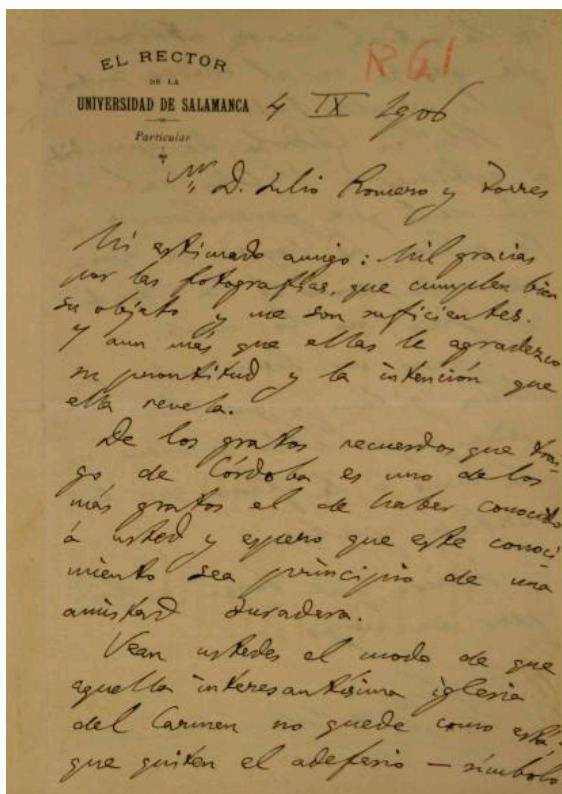 EL RECTOR
DE LA
UNIVERSIDAD DE SALAMANCA
Particular
R 61
4 IX 1906
Sr. D. Julio Romero y Torres
Mi estimado amigo: Mil gracias
por las fotografías, que cumplen bien
su objeto y me son suficientes.
Y aun más que ellas le agradezco
su prontitud y la intención que
ella revela.
De los gratos recuerdos que trai-
go de Córdoba es uno de los
más gratos el de haber conocido
á usted y espero que este conoci
miento sea principio de una
amistad duradera.
Vean ustedes el modo de que
aquella interesantísima iglesia
del Carmen no quede como está;
que quiten el adefesio — símbolo